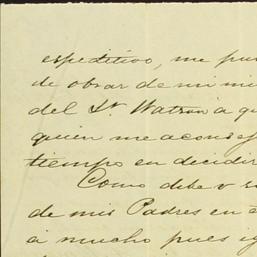 espeditivo, me pu
de obrar de mi mi
del Sr. Watson a q
quien me aconsej
tiempo en decidir
Como debe v
de mis Padres en
a mucho pues